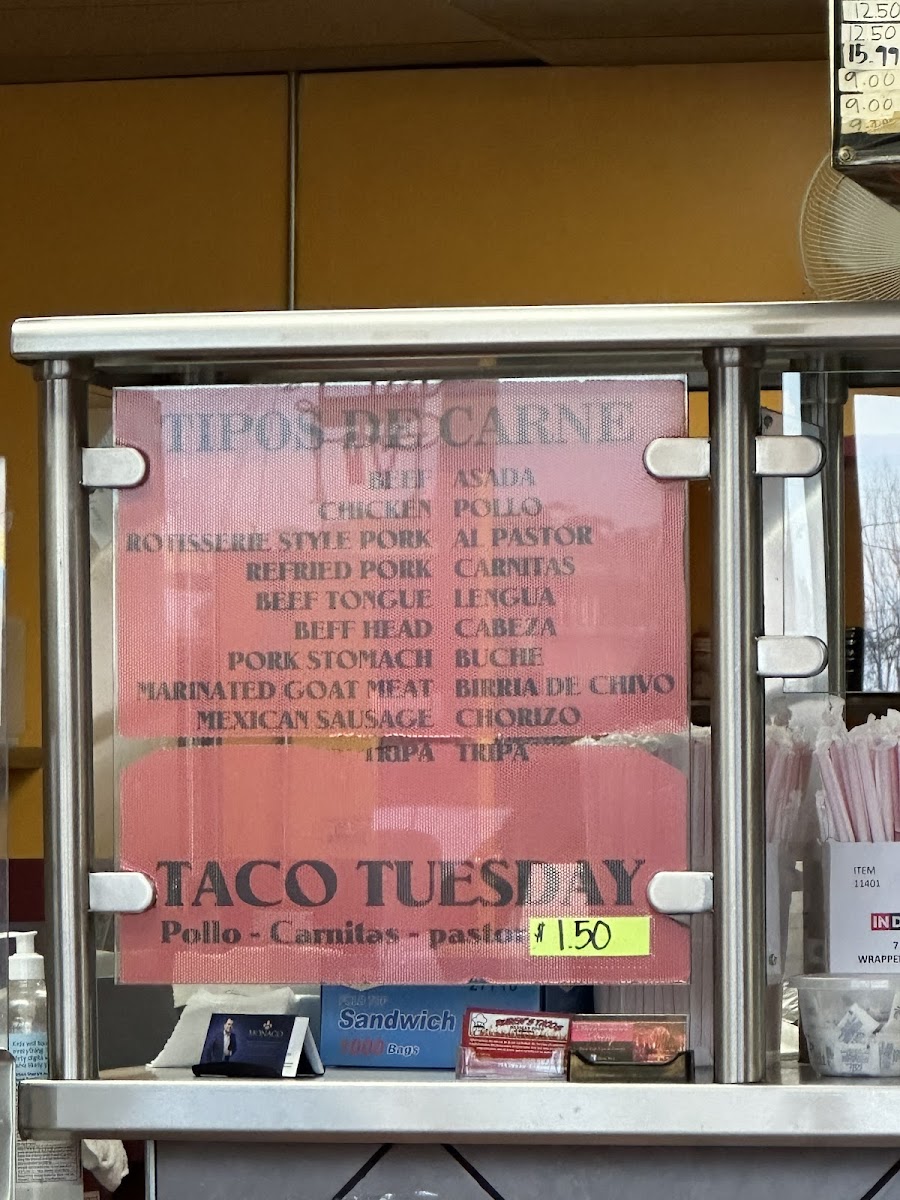 12.50
12.50
15.99
9.00
9.00
TIPOS DE CARNE
BEEF ASADA
CHICKEN POLLO
ROTISSERIE STYLE PORK AL PASTOR
REFRIED PORK CARNITAS
BEEF TONGUE LENGUA
BEFF HEAD CABEZA
PORK STOMACH BUCHE
MARINATED GOAT MEAT BIRRIA DE CHIVO
MEXICAN SAUSAGE CHORIZO
TRIPA TRIPA
TACO TUESDAY
Pollo - Carnitas - pastor $1.50
ITEM
11401
IND
7
WRAPPE
FOLD TOP
Sandwich
1000 Bags
MONACO